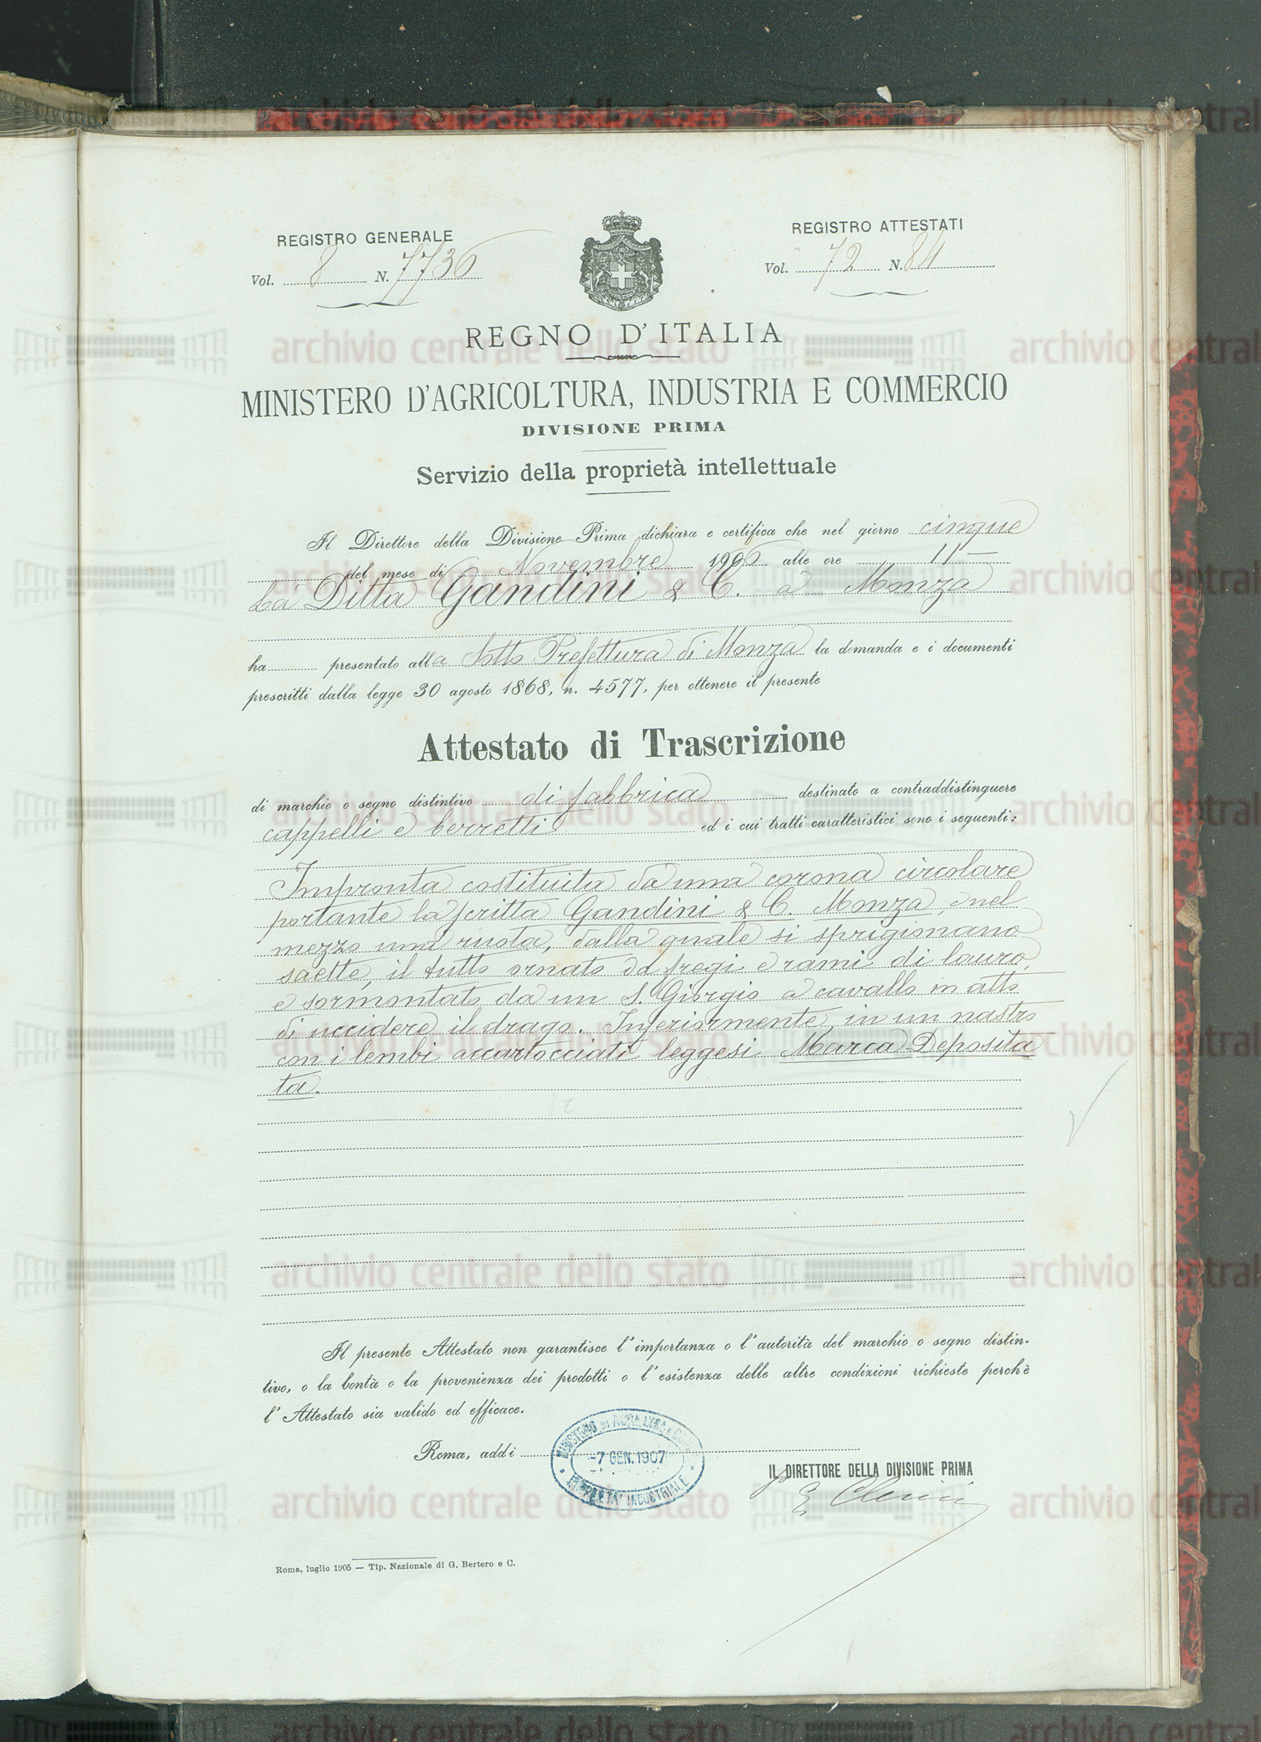 REGISTRO GENERALE
Vol. 8 N. 7736
REGISTRO ATTESTATI
Vol. 72 N. 84
REGNO D'ITALIA
MINISTERO D'AGRICOLTURA, INDUSTRIA E COMMERCIO
DIVISIONE PRIMA
Servizio della proprietà intellettuale
Il Direttore della Divisione Prima dichiara e certifica che nel giorno cinque
del mese di Novembre 1906 alle ore 11
La Ditta Gandini & C. a Monza
ha presentato alla Sotto Prefettura di Monza la domanda e i documenti
prescritti dalla legge 30 agosto 1868, n. 4577, per ottenere il presente
Attestato di Trascrizione
di marchio o segno distintivo di fabbrica destinato a contraddistinguere
cappelli e berretti ed i cui tratti caratteristici sono i seguenti:
Impronta costituita da una corona circolare
portante la scritta Gandini & C. Monza, e nel
mezzo una ruota, dalla quale si sprigionano
saette, il tutto ornato da fregi e rami di lauro,
e sormontato da un S. Giorgio a cavallo in atto
di uccidere il drago. Inferiormente, in un nastro
con i lembi accartocciati leggesi Marca Deposita
ta.
Il presente Attestato non garantisce l'importanza o l'autorità del marchio o segno distin-
tivo, o la bontà o la provenienza dei prodotti o l'esistenza delle altre condizioni richieste perchè
l'Attestato sia valido ed efficace.
Roma, addì -7 GEN. 1907
IL DIRETTORE DELLA DIVISIONE PRIMA
Roma, luglio 1905 — Tip. Nazionale di G. Bertero e C.
archivio centrale dello stato